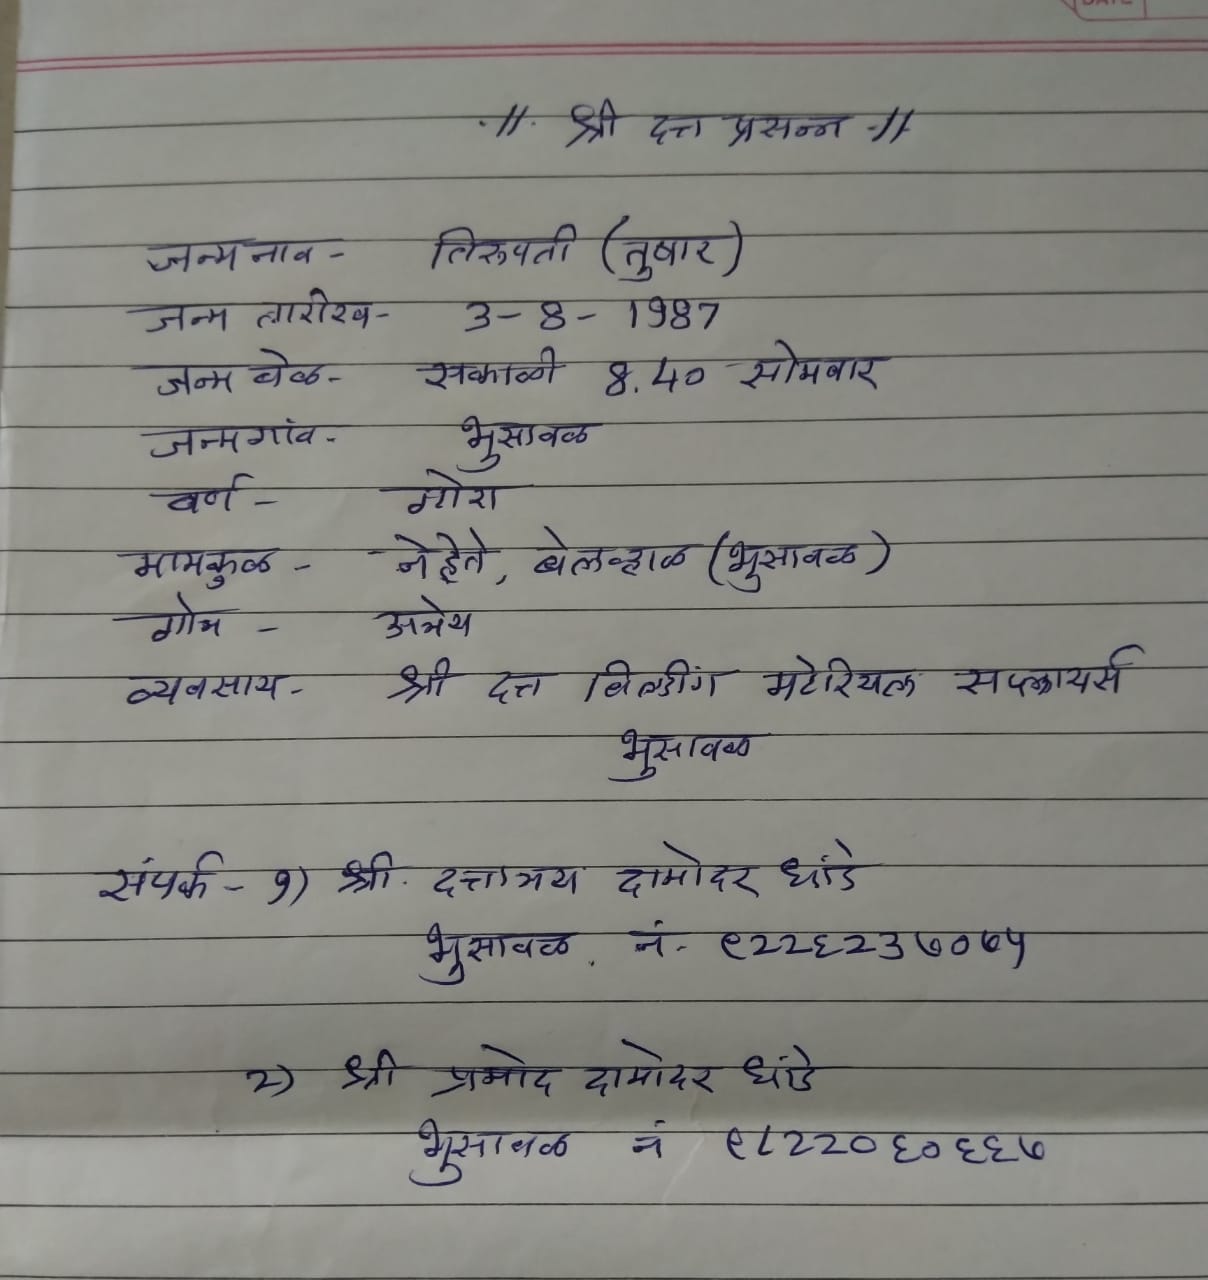 .॥. श्री दत्त प्रसन्न .॥
जन्म नाव - तिरुपती (तुषार)
जन्म तारीख - 3-8-1987
जन्म वेळ - सकाळी 8.40 सोमवार
जन्मगांव - भुसावळ
वर्ण - गोरा
मामकुळ - नेहेते, बेलव्हाळ (भुसावळ)
गोत्र - अत्रेय
व्यवसाय - श्री दत्त बिल्डींग मटेरियल सप्लायर्स
भुसावळ
संपर्क - १) श्री. दत्तात्रय दामोदर धांडे
भुसावळ. नं. ९२२६२३७०७५
२) श्री प्रमोद दामोदर धांडे
भुसावळ नं ९८२२०६०६६७